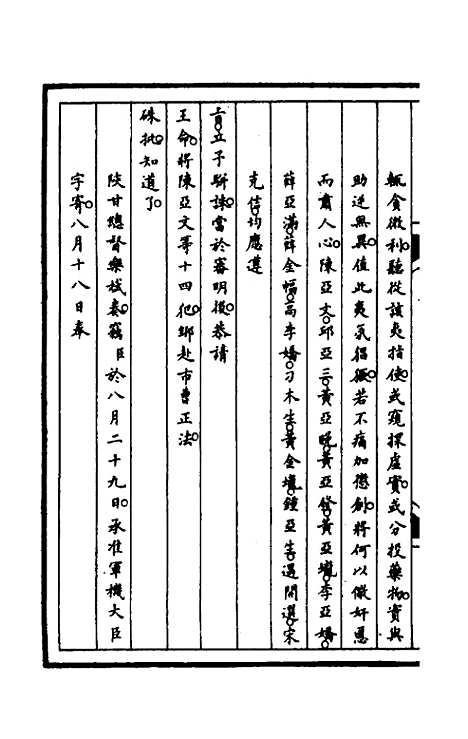 輒貪微利聽從該夷指使或窺探虛實或分投藥物實與
助逆無異值此夷氛猖獗若不痛加懲創將何以儆奸慝
而肅人心陳亞文邱亞三黃亞曉黃亞發黃亞壠李亞嬌
薛亞滿薛金幅高李嬌刁木生黃金壠鍾亞生溫開選宋
克佶均應遵
旨立予駢誅當於審明後恭請
王命將陳亞文等十四犯綁赴市曹正法
硃批知道了
陝甘總督樂斌奏竊臣於八月二十九日承准軍機大臣
字寄八月十八日奉